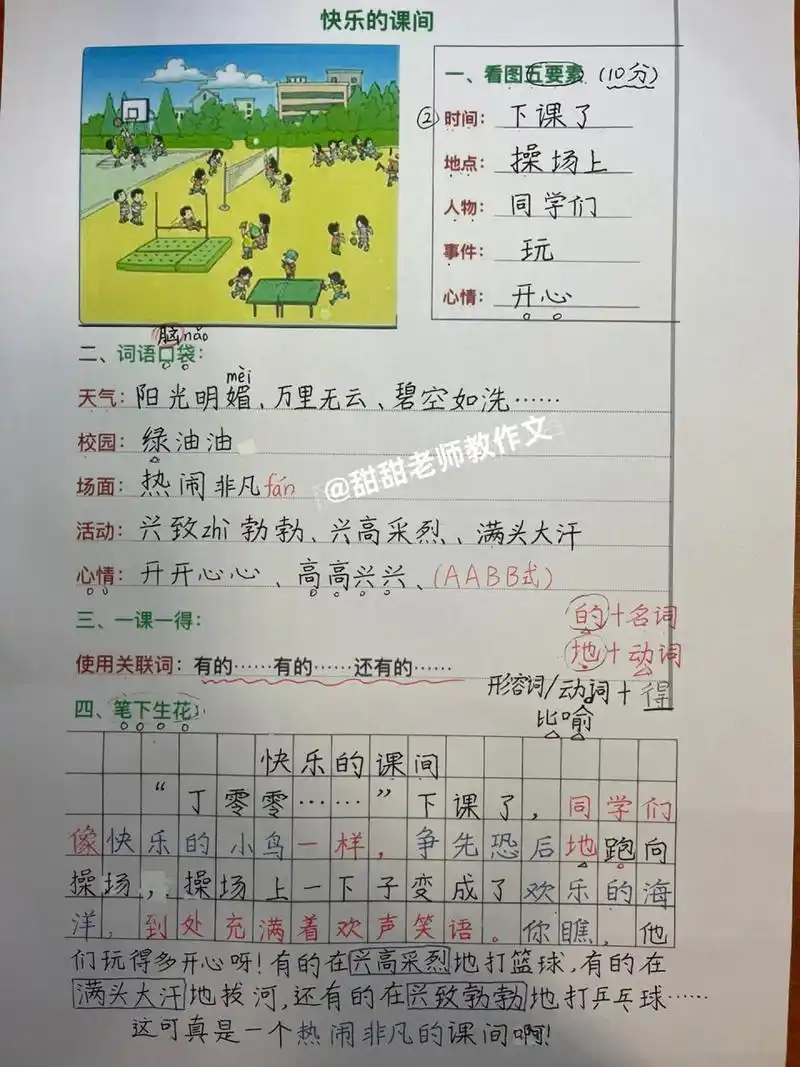 快乐的课间
一、看图五要素 (10分)
② 时间: 下课了
地点: 操场上
人物: 同学们
事件: 玩
心情: 开心
脑nǎo
二、词语口袋:
mèi
天气: 阳光明媚、万里无云、碧空如洗……
校园: 绿油油
@甜甜老师教作文
场面: 热闹非凡fán
活动: 兴致zhì勃勃、兴高采烈、满头大汗
心情: 开开心心、高高兴兴、(AABB式)
的+名词
三、一课一得:
地+动词
使用关联词: 有的……有的……还有的……
形容词/动词+得
四、笔下生花:
比喻
快乐的课间
“丁零零……”下课了,同学们
像快乐的小鸟一样,争先恐后地跑向
操场,操场上一下子变成了欢乐的海
洋,到处充满着欢声笑语。你瞧,他
们玩得多开心呀!有的在兴高采烈地打篮球,有的在
满头大汗地拔河,还有的在兴致勃勃地打乒乓球……
这可真是一个热闹非凡的课间啊!